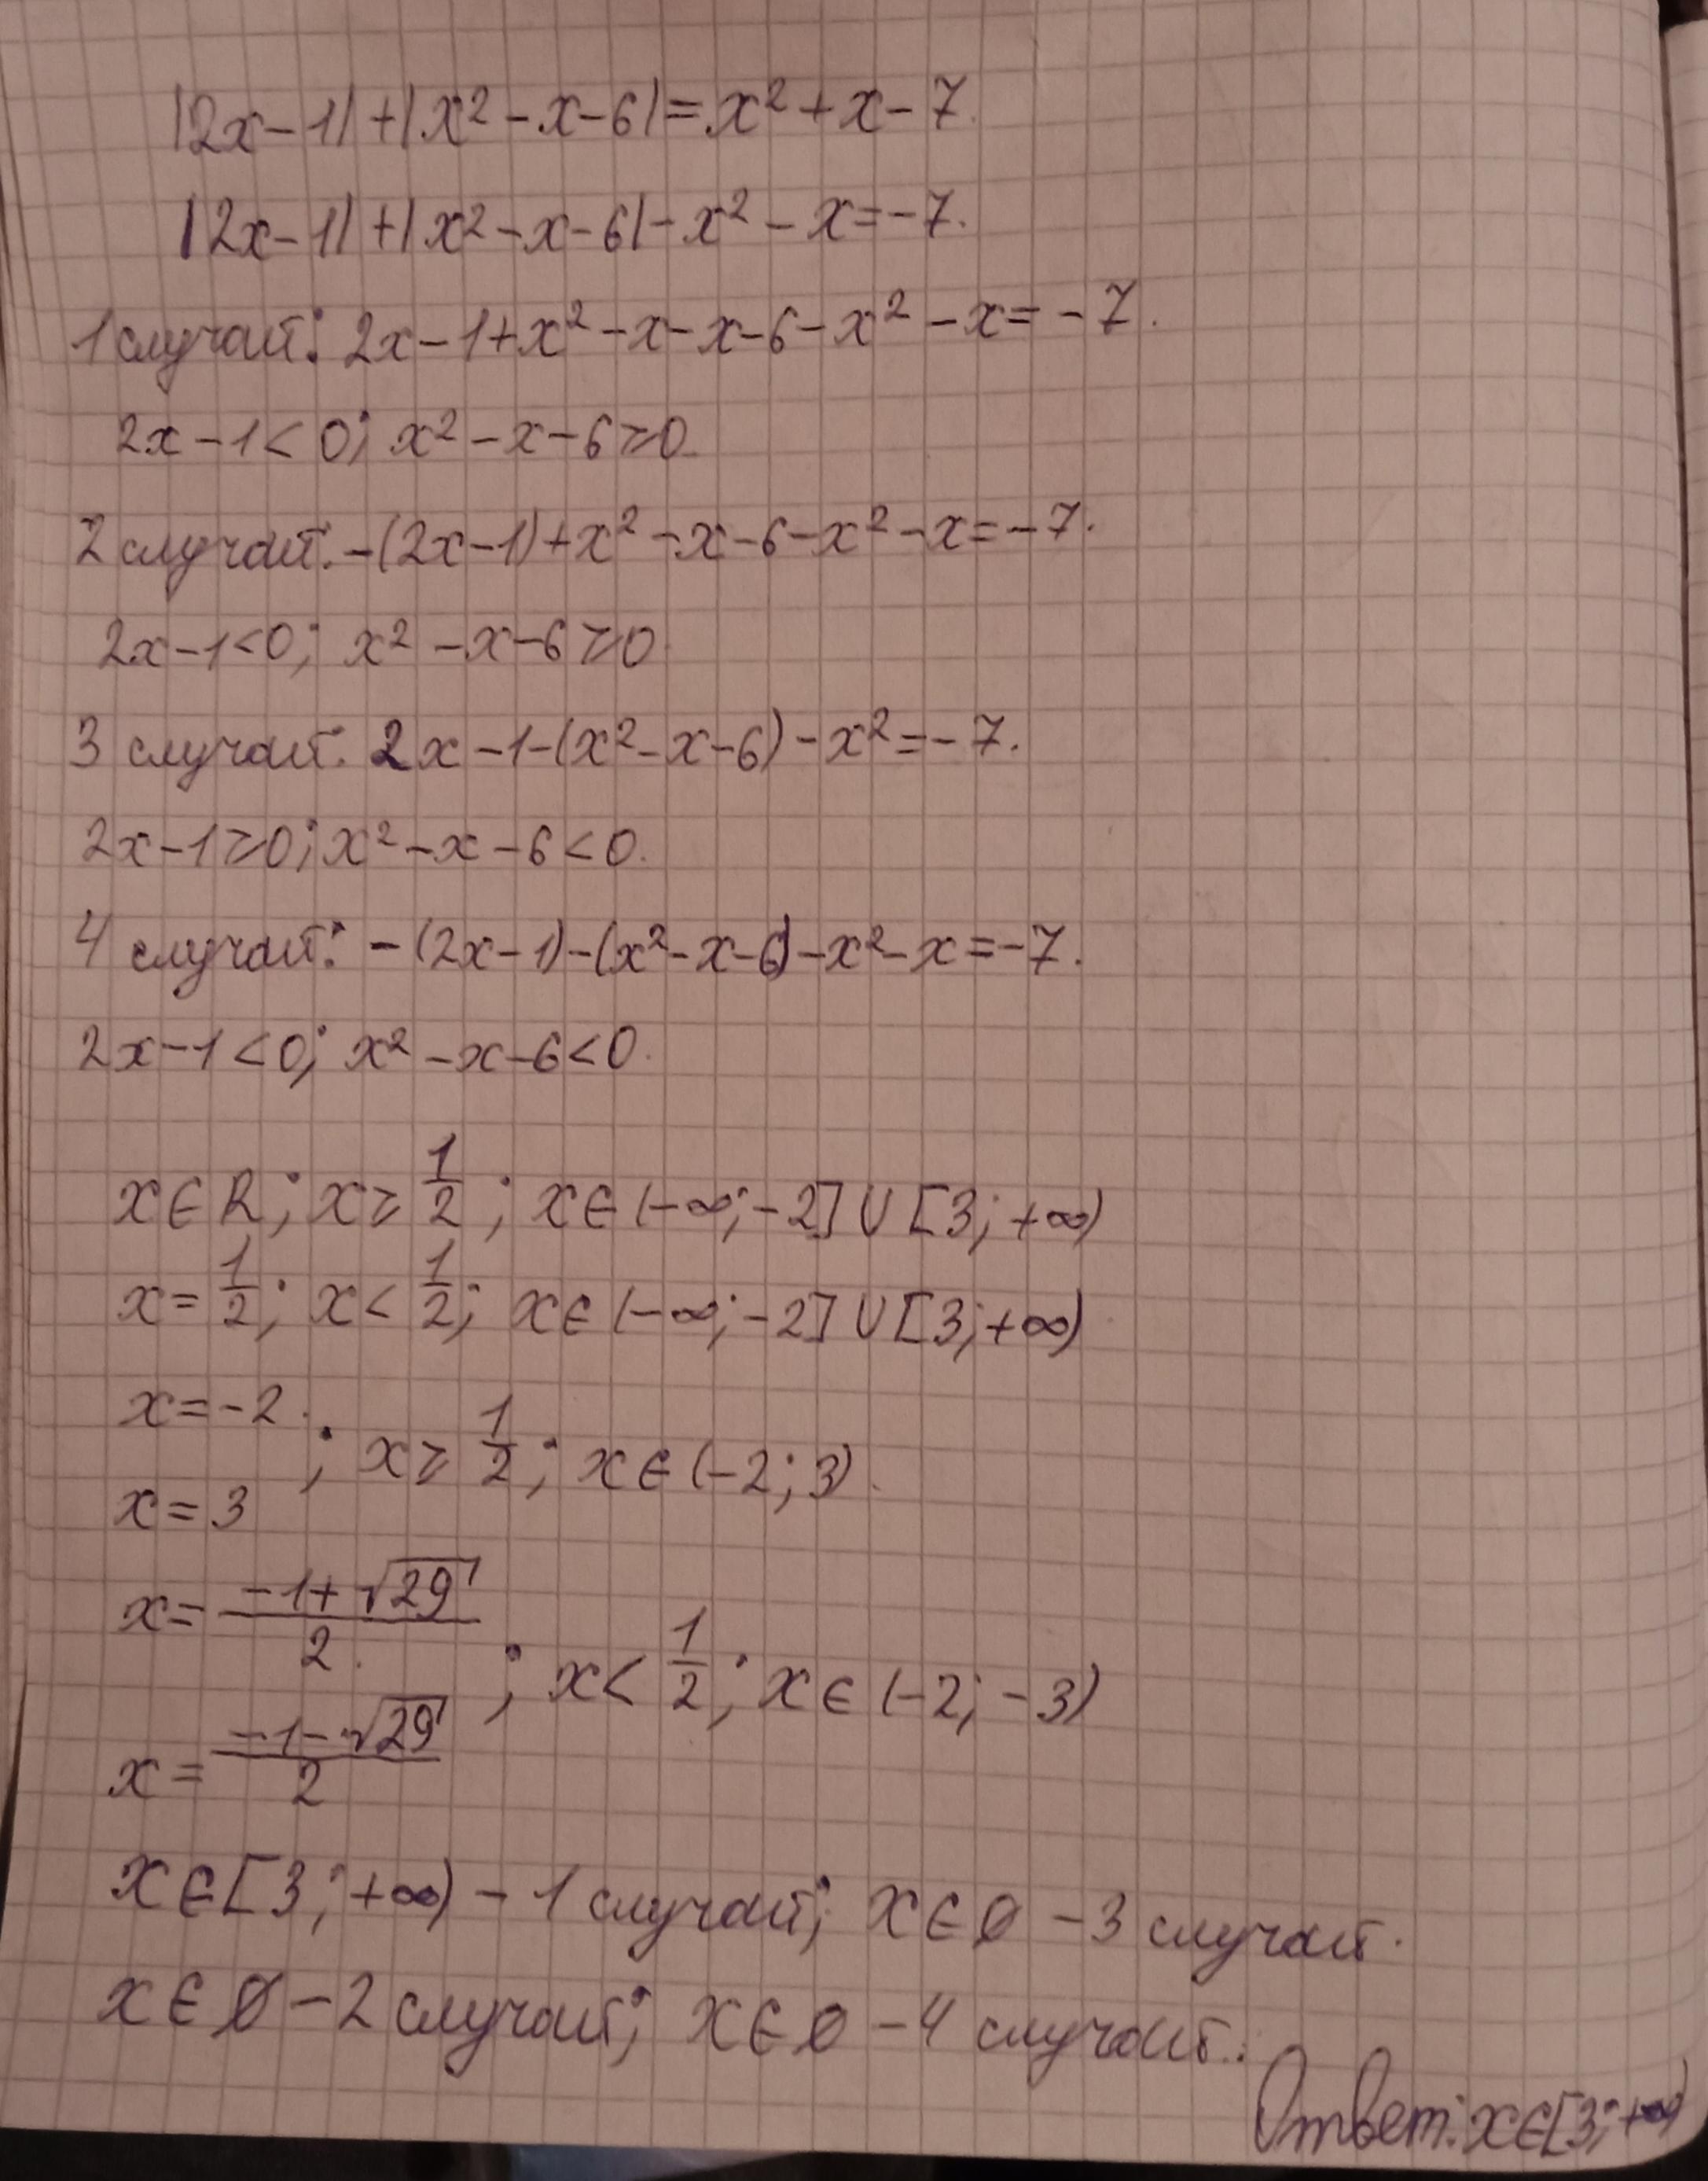 |2x-1|+|x²-x-6|=x²+x-7.
|2x-1|+|x²-x-6|-x²-x=-7.
1 случай: 2x-1+x²-x-x-6-x²-x=-7.
2x-1<0; x²-x-6≥0
2 случай: -(2x-1)+x²-x-6-x²-x=-7.
2x-1<0; x²-x-6≥0
3 случай: 2x-1-(x²-x-6)-x²=-7.
2x-1≥0; x²-x-6<0.
4 случай: -(2x-1)-(x²-x-6)-x²-x=-7.
2x-1<0; x²-x-6<0.
x∈R; x≥1/2; x∈(-∞;-2]∪[3;+∞)
x=1/2; x<1/2; x∈(-∞;-2]∪[3;+∞)
x=-2
; x≥1/2; x∈(-2;3).
x=3
x=(-1+√29)/2
; x<1/2; x∈(-2;-3)
x=(-1-√29)/2
x∈[3;+∞) - 1 случай; x∈∅ - 3 случай.
x∈∅ - 2 случай; x∈∅ - 4 случай.
Ответ: x∈[3;+∞)